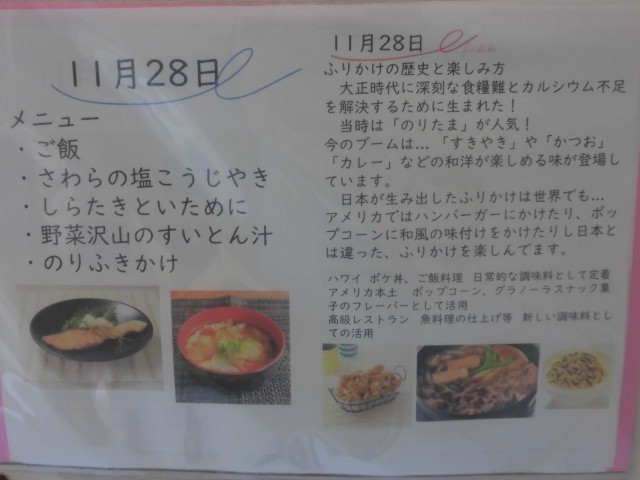 11月28日
メニュー
・ご飯
・さわらの塩こうじやき
・しらたきといために
・野菜沢山のすいとん汁
・のりふきかけ
11月28日
ふりかけの歴史と楽しみ方
　大正時代に深刻な食糧難とカルシウム不足
を解決するために生まれた！
　当時は「のりたま」が人気！
今のブームは…「すきやき」や「かつお」
「カレー」などの和洋が楽しめる味が登場し
ています。
　日本が生み出したふりかけは世界でも…
アメリカではハンバーガーにかけたり、ポッ
プコーンに和風の味付けをかけたりし日本と
は違った、ふりかけを楽しんでます。
ハワイ　ポケ丼、ご飯料理　日常的な調味料として定着
アメリカ本土　ポップコーン、グラノーラスナック菓
子のフレーバーとして活用
高級レストラン　魚料理の仕上げ等　新しい調味料とし
ての活用